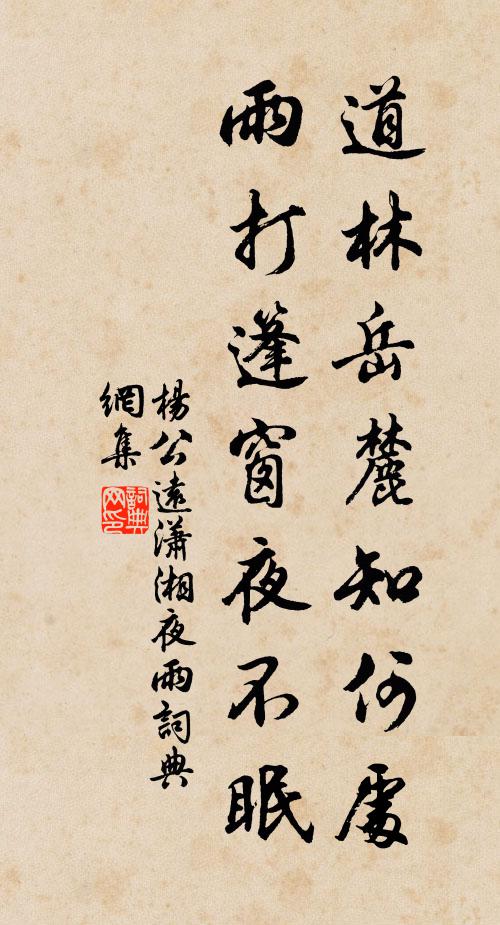 道林岳麓知何處
雨打蓬窗夜不眠
楊公遠瀟湘夜雨詞典
網集
詞典
网印